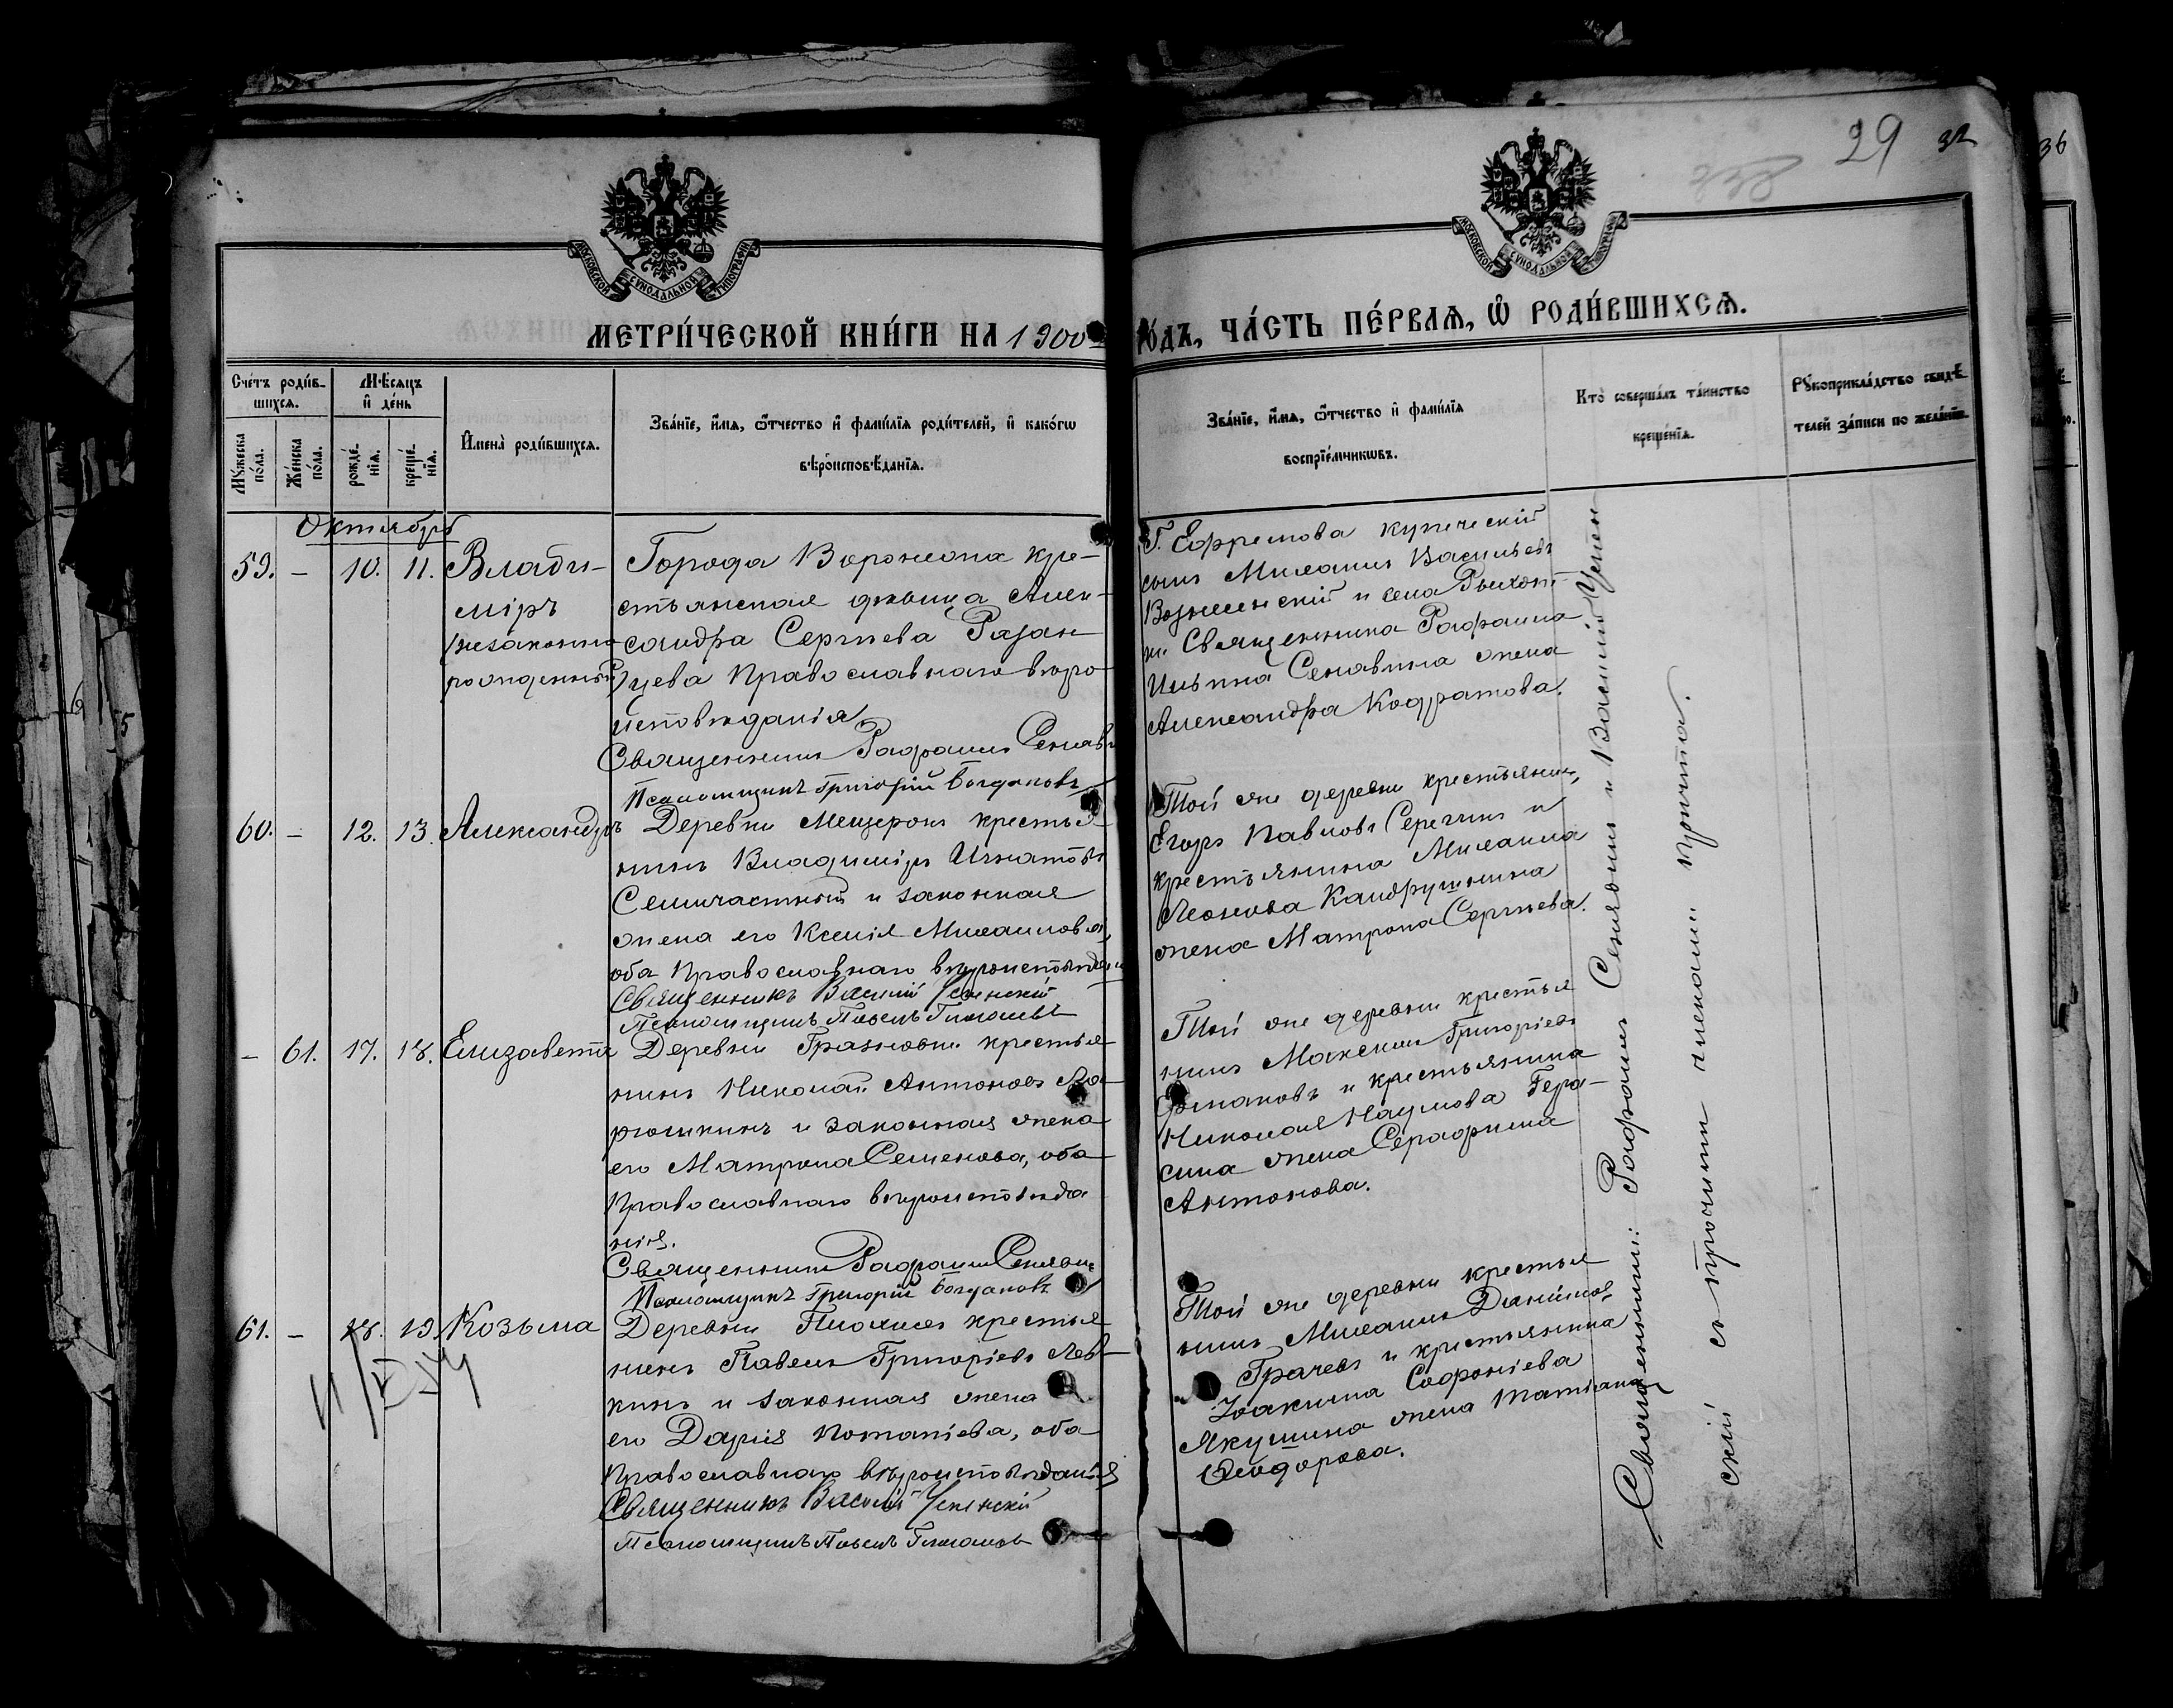 29 32
36
МОСКОВСКОЙ СУНОДАЛЬНОЙ ТИПОГРАФІИ
МОСКОВСКОЙ СУНОДАЛЬНОЙ ТИПОГРАФІИ
МЕТРИ́ЧЕСКОЙ КНИ́ГИ НА 1900
ГО́ДЪ, ЧА́СТЬ ПЕ́РВАѦ, Ѽ РОДИ́ВШИХСѦ.
Сче́тъ роди́в-
шихсѧ.
Мѣ́сѧцъ
и҆ де́нь
Мꙋ́жеска
по́ла.
Же́нска
по́ла.
рожде́-
нїѧ.
креще́-
нїѧ.
И҆мена̀ роди́вшихсѧ.
Зва́нїе, и҆́мѧ, ѻ҆́тчество и҆ фами́лїѧ роди́телей, и҆ како́гѡ
вѣроисповѣ́данїѧ.
Зва́нїе, и҆́мѧ, ѻ҆́тчество и҆ фами́лїѧ
воспрїе́мникѡвъ.
Кто̀ соверша́лъ та́инство
креще́нїѧ.
Рꙋкоприкла́дство свидѣ́-
телей за́писи по жела́нїю.
Октябрь
59. – 10. 11. Влади-
міръ
(незаконно
рожденный)
Города Воронежа кре-
стьянская девица Алек-
сандра Сергиева Разан-
цева Православнаго веро
исповѣданія
Священникъ Рафаилъ Сенявин
Псаломщикъ Григорій Богдановъ
Г. Ефремова купеческій
сынъ Михаилъ Васильевъ
Вознесенскій и села
Священника Рафаила
Ильина Сенявина жена
Александра Кодратова.
60. – 12. 13. Александръ
Деревни Мещерокъ крестья-
нинъ Владиміръ Игнатовъ
Семичастный и законная
жена его Ксенія Михаилова,
оба Православнаго вѣроисповѣданія
Священникъ Василій Успенскій
Псаломщикъ Павелъ Тихомовъ
Той же деревни крестьянинъ
Егоръ Павловъ Серегинъ и
крестьянина Михаила
Леонова Кандрушкина
жена Матрона Сергиева.
– 61. 17. 18. Елизавета
Деревни Грязновки крестья-
нинъ Николай Антоновъ Ла-
рюшкинъ и законная жена
его Матрона Семенова, оба
Православнаго вѣроисповѣда
нія.
Священникъ Рафаилъ Сенявин
Псаломщикъ Григорій Богдановъ
Той же деревни крестья
нинъ Максимъ Григоріевъ
Ермаковъ и крестьянина
Николая Наумова Гера-
сина жена Серафима
Антонова.
61. – 18. 19. Козьма
Деревни крестья
нинъ Павелъ Григоріевъ Лев-
кинъ и законная жена
его Дарія Потапіева, оба
Православнаго вѣроисповѣданія
Священникъ Василій Успенскій
Псаломщикъ Павелъ Тихомовъ
Той же деревни крестья
нинъ Михаилъ Даниловъ
Грачевъ и крестьянина
Іоакима Софроніева
Якушина жена Татіана
Ѳеодорова.
Священники: Рафаилъ Сенявинъ и Василій Успен
скій съ прочими членами причта.